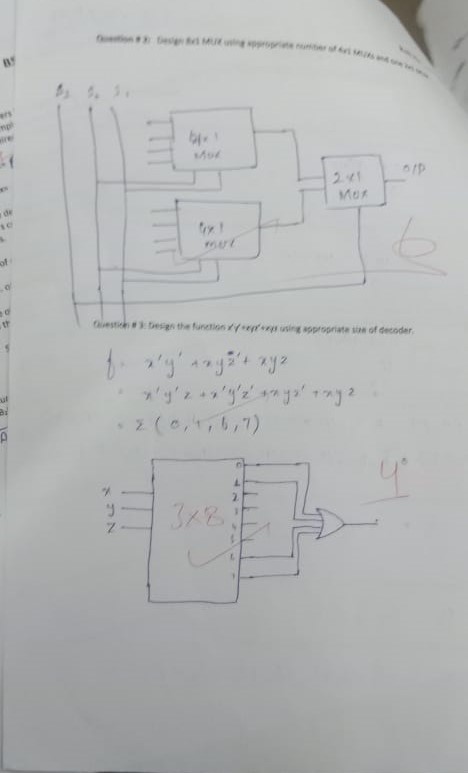 Question # 2: Design 8x1 MUX using appropriate number of 4x1 MUXs and one 2x1 MUX
S2 S0 S1
4x1
Mux
2x1
Mux
O/P
4x1
mux
6
Question # 3: Design the function x'y'+xyz'+xyz using appropriate size of decoder.
f = x'y' + xyz' + xyz
= x'y'z + x'y'z' + xyz' + xyz
= Σ(0,1,6,7)
0
1
x 2
y 3x8 3
z 4
5
6
7
4